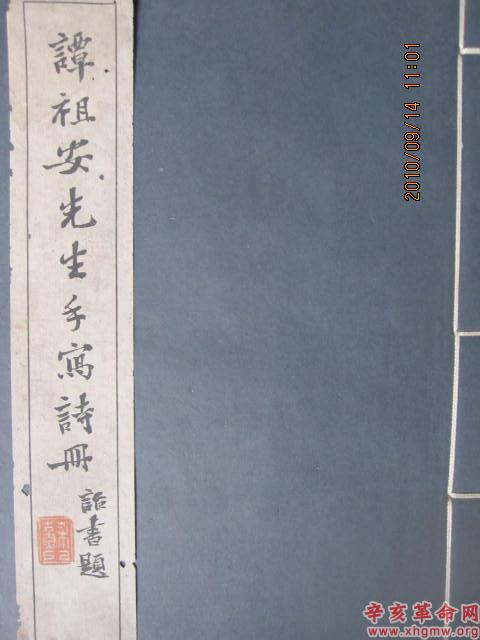 譚祖安先生手寫詩冊
詒書題
2010/09/14 11:01
辛亥革命网
www.xhgmw.org